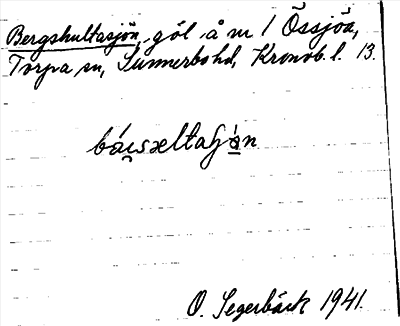 Bergshultasjön, göl å nr 1 Össjöa,
Torpa sn, Sunnerbo hd, Kronob. l. 13.
O. Segerbäck 1941.